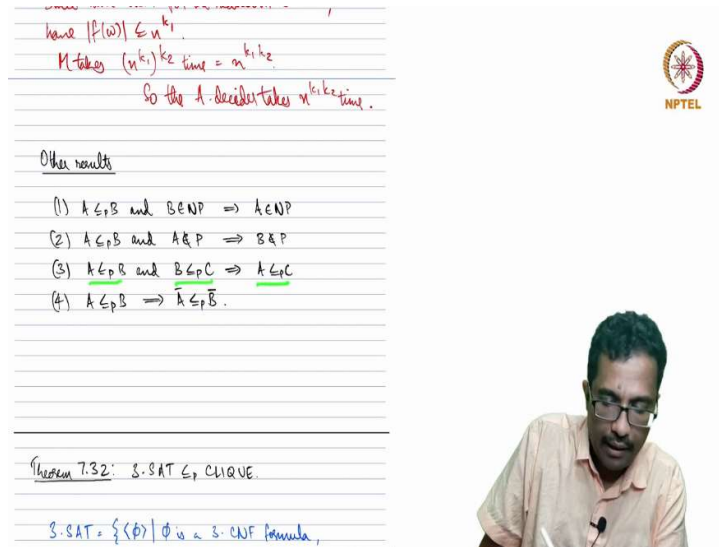 have |f(w)| ≤ n^k₁.
M takes (n^k₁)^k₂ time = n^k₁k₂.
So the A-decider takes n^k₁k₂ time.
NPTEL
Other results
(1) A ≤ₚ B and B ∈ NP ⇒ A ∈ NP
(2) A ≤ₚ B and A ∉ P ⇒ B ∉ P
(3) A ≤ₚ B and B ≤ₚ C ⇒ A ≤ₚ C
(4) A ≤ₚ B ⇒ Ā ≤ₚ B̄.
Theorem 7.32: 3-SAT ≤ₚ CLIQUE.
3-SAT = {⟨φ⟩ | φ is a 3-CNF formula,